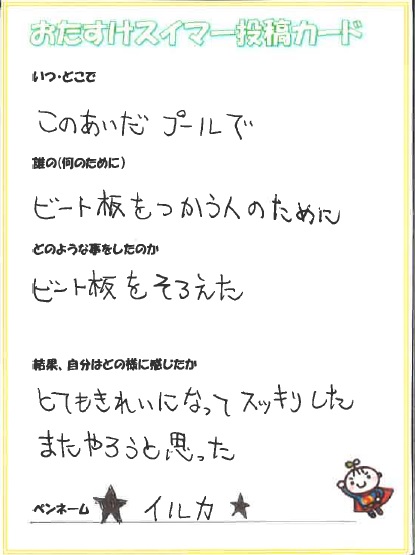 おたすけスイマー投稿カード
いつ・どこで
このあいだ プールで
誰の(何のために)
ビート板をつかう人のために
どのような事をしたのか
ビート板をそろえた
結果、自分はどの様に感じたか
とてもきれいになってスッキリした
またやろうと思った
ペンネーム ★ イルカ ★